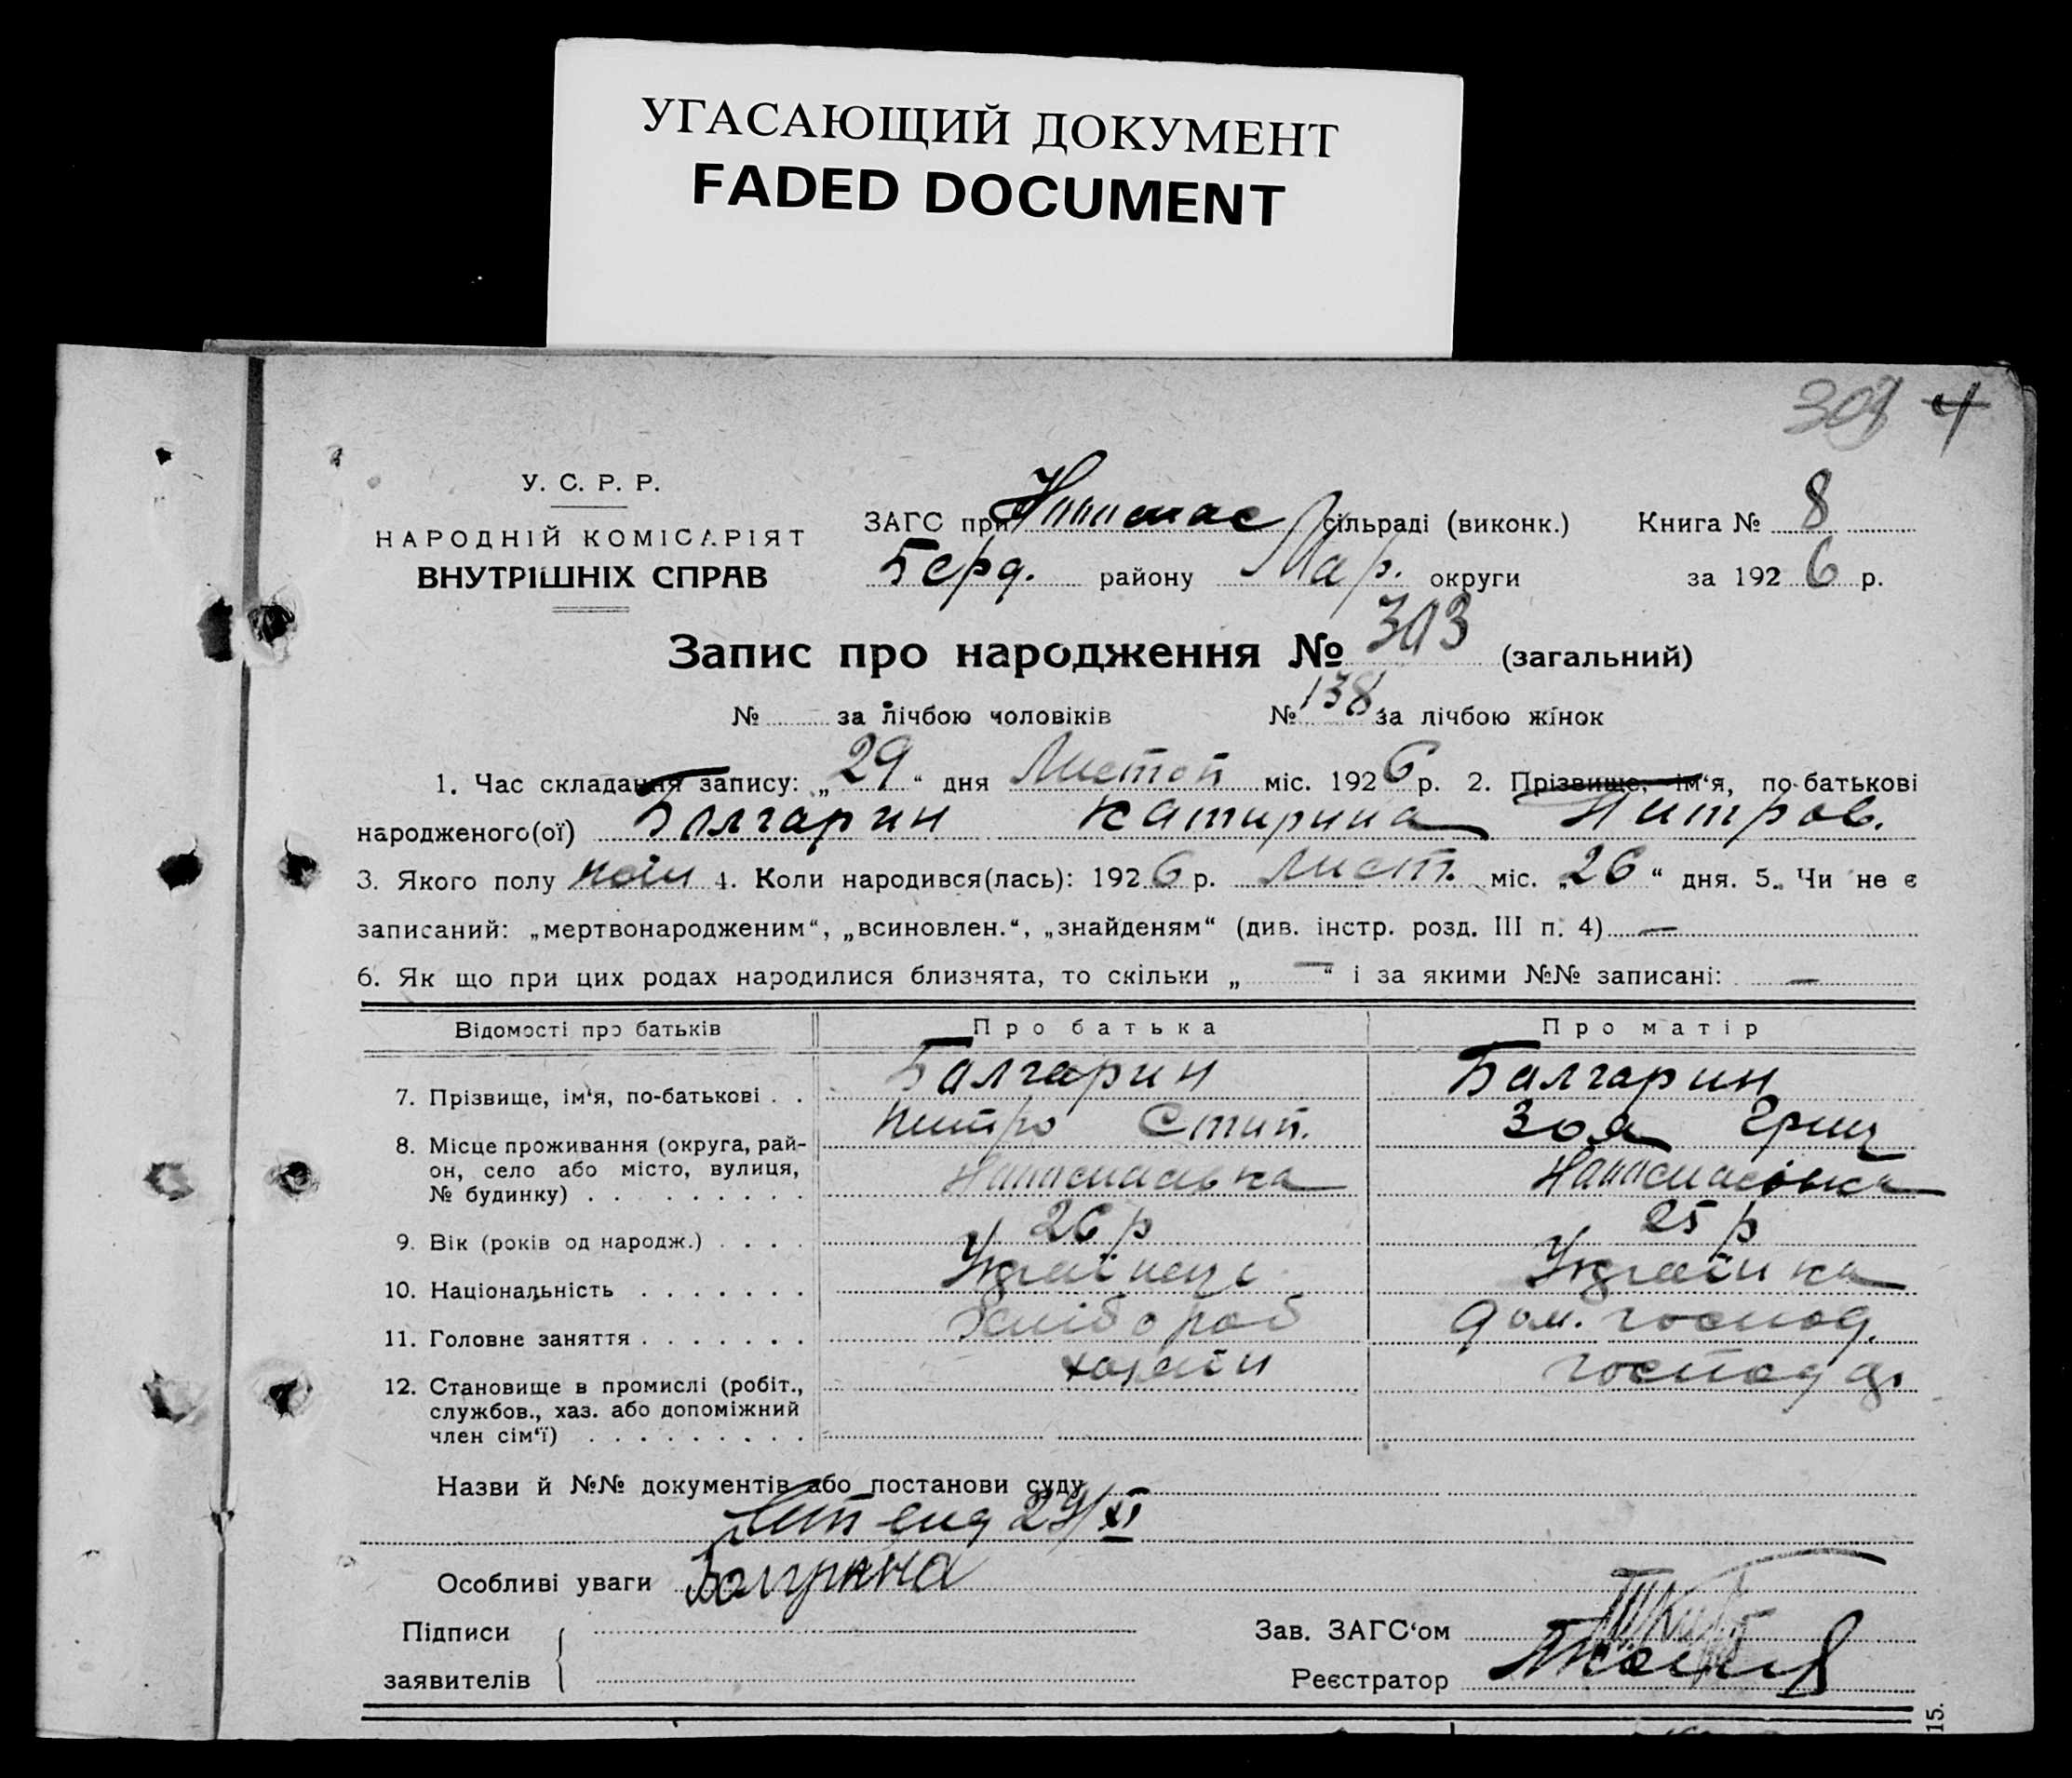 УГАСАЮЩИЙ ДОКУМЕНТ
FADED DOCUMENT
4
У. С. Р. Р.
НАРОДНІЙ КОМІСАРІЯТ
ВНУТРІШНІХ СПРАВ
ЗАГС при сільраді (виконк.) Книга № 8
Берд. району Мар. округи за 1926 р.
Запис про народження № 303 (загальний)
№ за лічбою чоловіків № 138 за лічбою жінок
1. Час складання запису: „29“ дня Листоп міс. 1926 р. 2. Прізвище, ім‘я, по-батькові
народженого(ої) Балгарин Катирина Питров.
3. Якого полу 4. Коли народився(лась): 1926 р. Лист. міс. „26“ дня. 5. Чи не є
записаний: „мертвонародженим“, „всиновлен.“, „знайденям“ (див. інстр. розд. III п. 4) —
6. Як що при цих родах народилися близнята, то скільки „—“ і за якими №№ записані: —
Відомості про батьків Про батька Про матір
7. Прізвище, ім‘я, по-батькові . . Балгарин Балгарин
Питро Стип. Зоя Гриц
8. Місце проживання (округа, рай-
он, село або місто, вулиця,
№ будинку) . . . . . . . . .
9. Вік (років од народж.) . . . . 26 р 25 р
10. Національність . . . . . . . Українець Українка
11. Головне заняття . . . . . . . Хлібороб дом. господ.
12. Становище в промислі (робіт.,
службов., хаз. або допоміжний
член сім‘ї) . . . . . . . . . хазяїн господ
Назви й №№ документів або постанови суду
29/XI
Особливі уваги
Підписи
заявителів
Зав. ЗАГС‘ом
Реєстратор
15.